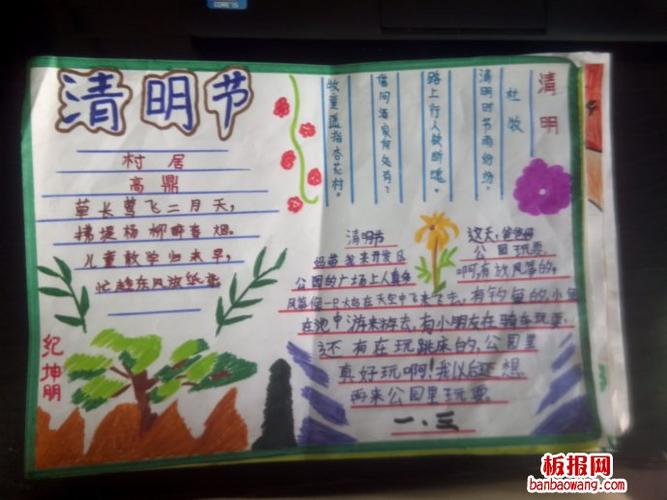 清明节
村居
高鼎
草长莺飞二月天，
拂堤杨柳醉春烟。
儿童散学归来早，
忙趁东风放纸鸢
纪坤朋
清明
杜牧
清明时节雨纷纷，
路上行人欲断魂。
借问酒家何处有？
牧童遥指杏花村。
清明节
这天，爸爸妈
妈带着来开发区公园玩耍
公园的广场上人真多啊，有放风筝的，
风筝像一只大鸟在天空中飞来飞去，有钓鱼的，小鱼
在池中游来游去，有小朋友在骑车玩耍，
还有在玩跳床的，公园里
真好玩啊！我以后还想
再来公园里玩耍
一、三
板报网
banbaowang.com